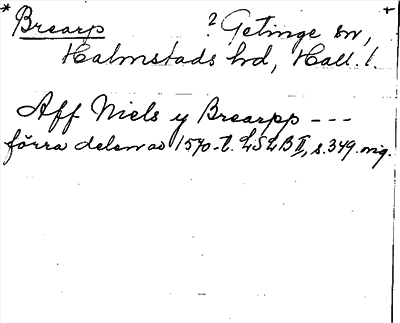 * Brearp ? Getinge sn, +
Halmstads hd, Hall. l.
Aff Niels y Brearpp ---
förra delen av 1570-t. LSLB II, s. 349. orig.